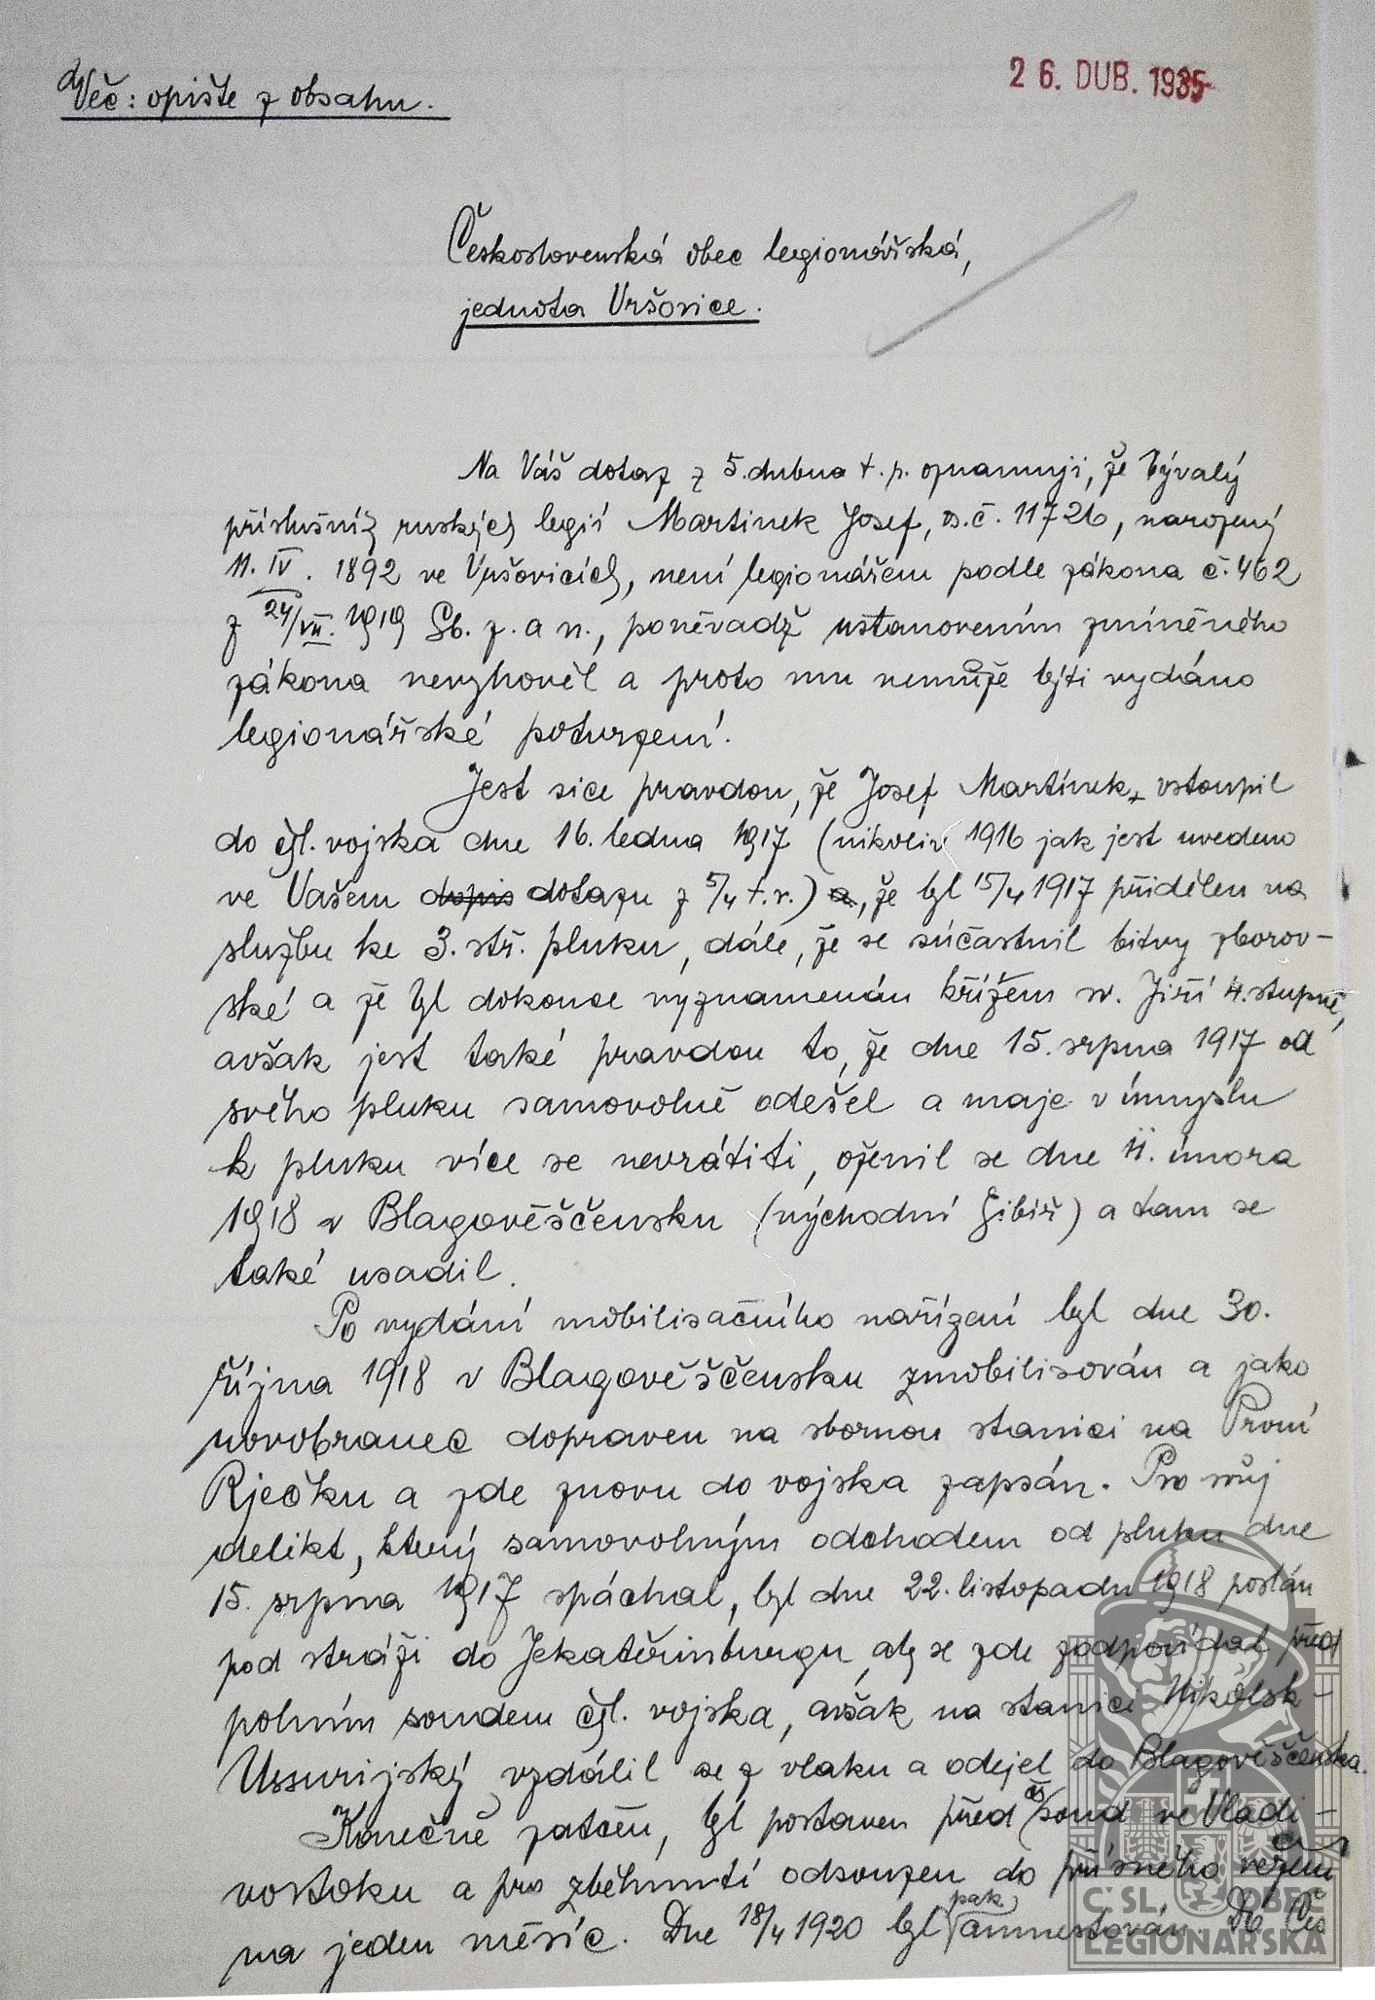 Věc: opište z obsahu.
26. DUB. 1935
Československá obec legionářská,
jednota Vršovice.
Na Váš dotaz z 5. dubna t. r. oznamuji, že bývalý
příslušník ruských legií Martinek Josef, os. č. 11726, narozený
11. IV. 1892 ve Vršovicích, není legionářem podle zákona č. 462
z 24/VII. 1919 Sb. z. a n., poněvadž ustanovením zmíněného
zákona nevyhověl a proto mu nemůže býti vydáno
legionářské potvrzení.
Jest sice pravdou, že Josef Martinek vstoupil
do čsl. vojska dne 16. ledna 1917 (nikoliv 1916 jak jest uvedeno
ve Vašem dopis dotazu z 5/4 t. r.) a, že byl 15/4 1917 přidělen na
službu ke 3. stř. pluku, dále, že se súčastnil bitvy zborov-
ské a že byl dokonce vyznamenán křížem sv. Jiří 4. stupně,
avšak jest také pravdou to, že dne 15. srpna 1917 od
svého pluku samovolně odešel a maje v úmyslu
k pluku více se nevrátiti, oženil se dne 11. února
1918 v Blagověščensku (východní Sibiř) a tam se
také usadil.
Po vydání mobilisačního nařízení byl dne 30.
října 1918 v Blagověščensku zmobilisován a jako
novobranec dopraven na sbornou stanici na První
Rječku a zde znovu do vojska zapsán. Pro svůj
delikt, který samovolným odchodem od pluku dne
15. srpna 1917 spáchal, byl dne 22. listopadu 1918 poslán
pod stráží do Jekatěrinburgu, aby se zde zodpovídal před
polním soudem čsl. vojska, avšak na stanici Nikolsk-
Ussurijský vzdálil se z vlaku a odejel do Blagověščenska.
Konečně zatčen, byl postaven před čs soud ve Vladi-
vostoku a pro zběhnutí odsouzen do přísného vězení
na jeden měsíc. Dne 18/4 1920 byl pak amnestován. Do Čes
ČSL. OBEC
LEGIONÁŘSKÁ